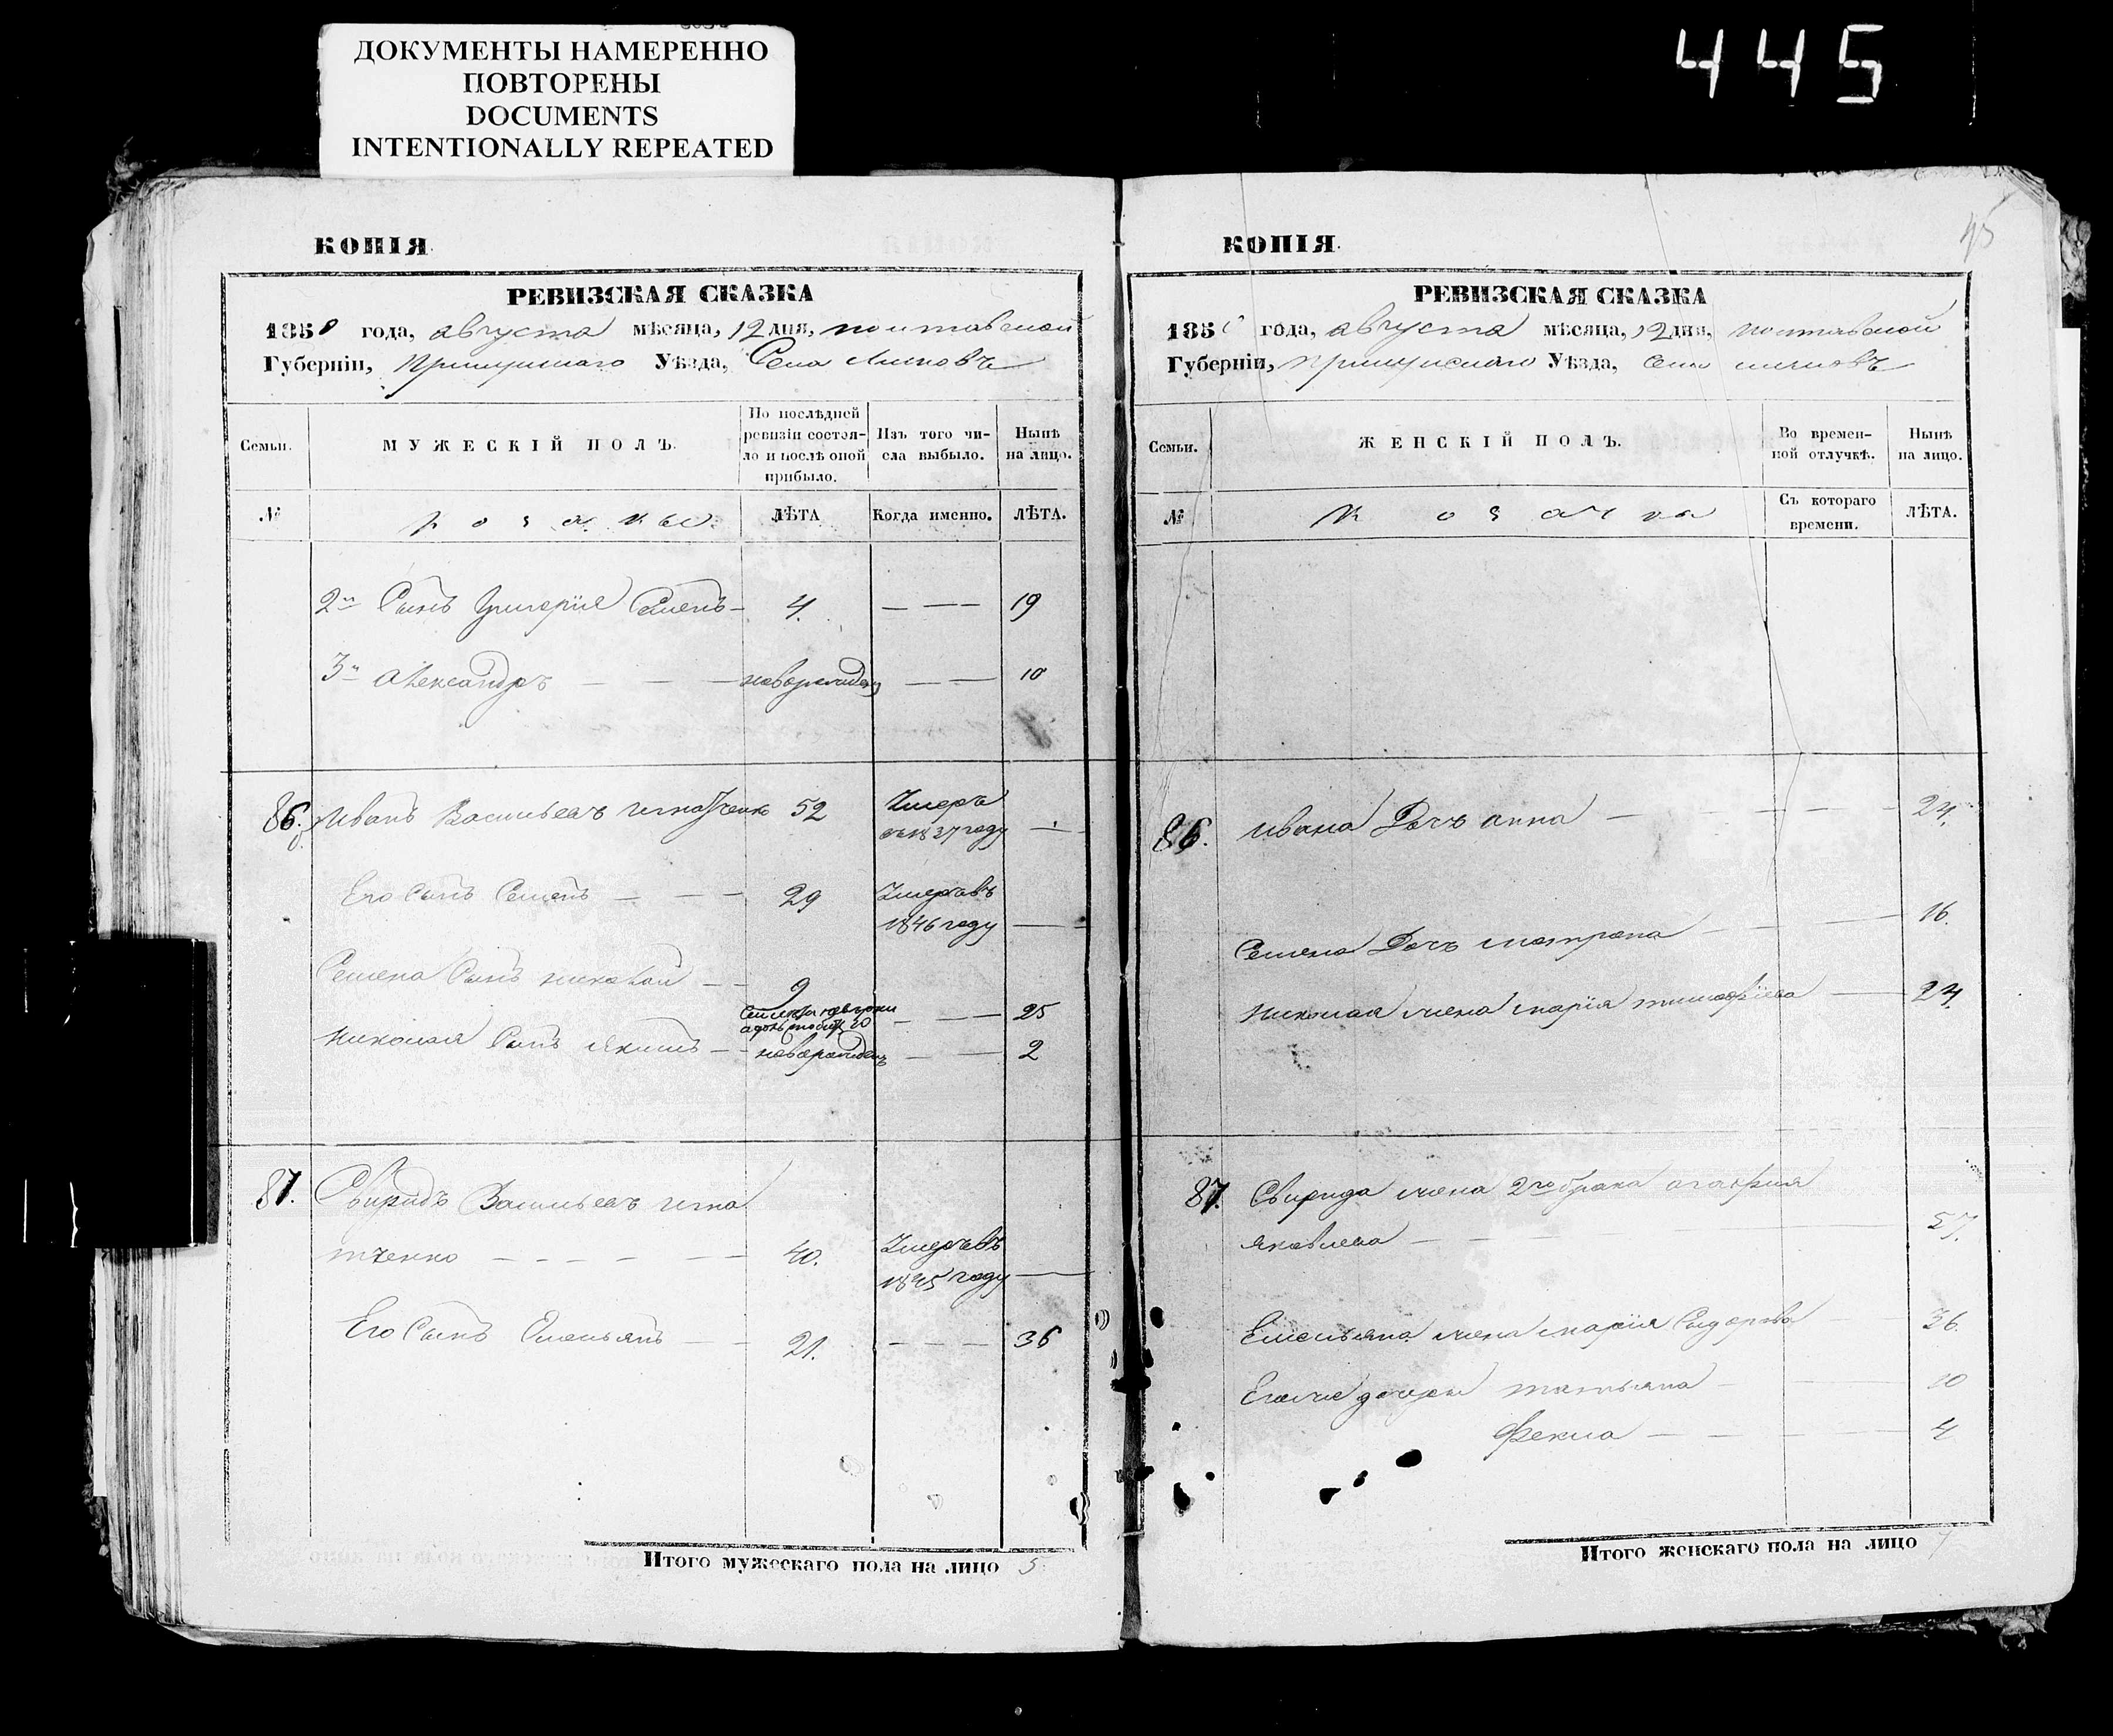 ДОКУМЕНТЫ НАМЕРЕННО
ПОВТОРЕНЫ
DOCUMENTS
INTENTIONALLY REPEATED
445
КОПІЯ.
РЕВИЗСКАЯ СКАЗКА
1850 года, августа мѣсяца, 12 дня, полтавской
Губерніи, Прилуцкаго Уѣзда, Села
Семьи.
МУЖЕСКІЙ ПОЛЪ.
По послѣдней
ревизіи состоя-
ло и послѣ оной
прибыло.
Изъ того чи-
сла выбыло.
Нынѣ
на лицо.
№
козаки.
ЛѢТА
Когда именно.
ЛѢТА.
2й Сынъ Григорій Семенъ 4. 19
3й Александръ новорожденъ 10
86. Иванъ Васильевъ Игнатченко 52 Умеръ
въ 1837 году
Его Сынъ Семенъ 29 Умеръ въ
1846 году
Семена Сынъ Николай 9
25
Николая Сынъ Якимъ новорожденъ 2
87. Свиридъ Васильевъ Игна
тченко 40. Умеръ въ
1845 году
Его Сынъ Емельянъ 21. 36
Итого мужескаго пола на лицо 5
45
КОПІЯ.
РЕВИЗСКАЯ СКАЗКА
1850 года, августа мѣсяца, 12 дня, полтавской
Губерніи, Прилуцкаго Уѣзда, Села
Семьи.
ЖЕНСКІЙ ПОЛЪ.
Во времен-
ной отлучкѣ.
Нынѣ
на лицо.
№
козачка
Съ котораго
времени.
ЛѢТА.
86. Ивана Дочь анна 24.
Семена Дочь матрона 16.
Николая жена марія тимофіева 24.
87. Свирида жена 2го брака агафия
яковлева 57.
Емельяна жена марія Сидорова 36.
Егоже дочери татьяна 10
Фекла 4
Итого женскаго пола на лицо 7